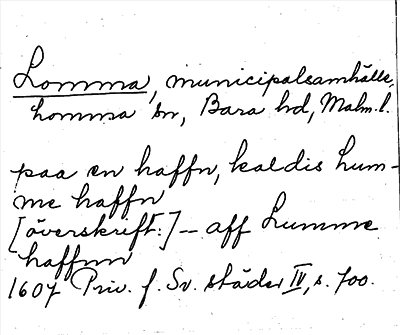 Lomma, municipalsamhälle,
Lomma sn, Bara hd, Malm. l.
paa en haffn, kaldis Lum-
me haffn
[överskrift:] – aff Lumme
haffnn
1607 Priv. f. Sv. städer IV, s. 700.